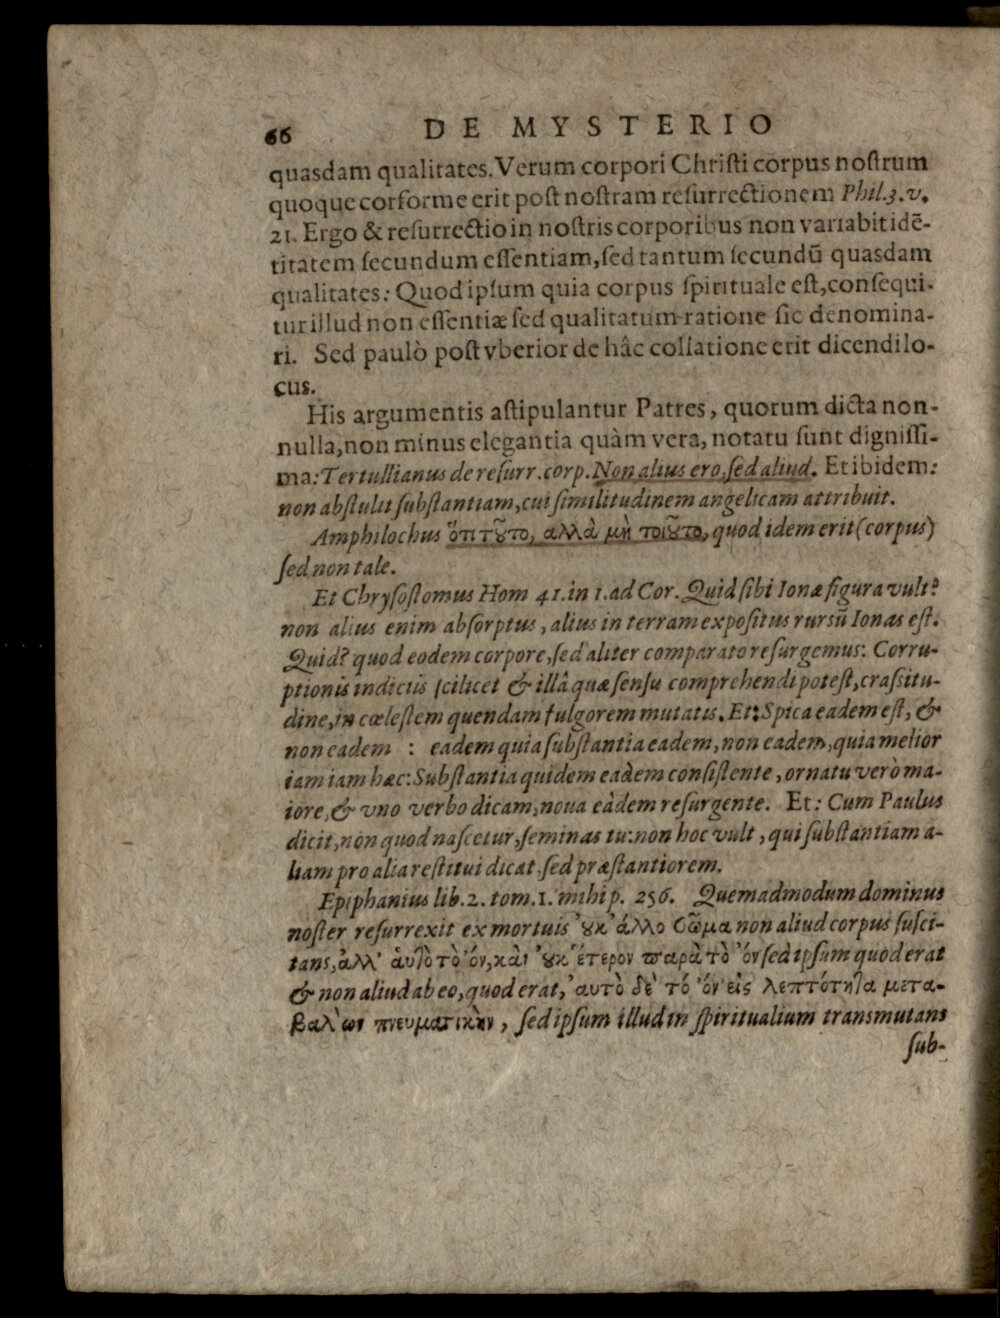 66 DE MYSTERIO
quasdam qualitates. Verum corpori Chriſti corpus noſtrum
quoque corforme erit poſt noſtram reſurrectionem Phil.3.v.
21. Ergo & reſurrectio in noſtris corporibus non variabit idē-
titatem ſecundum eſſentiam, ſed tantum ſecundū quasdam
qualitates: Quod ipſum quia corpus ſpirituale eſt, conſequi-
tur illud non eſſentiæ ſed qualitatum ratione ſic denomina-
ri. Sed paulò poſt vberior de hâc collatione erit dicendi lo-
cus.
His argumentis aſtipulantur Patres, quorum dicta non-
nulla, non minus elegantia quàm vera, notatu ſunt digniſſi-
ma: Tertullianus de reſurr. corp. Non alius ero, ſed aliud. Et ibidem:
non abſtulit ſubſtantiam, cui ſimilitudinem angelicam attribuit.
Amphilochus ὅτι τȣ͂το, αλλὰ μὴ τοιȣ͂το, quod idem erit (corpus)
ſed non tale.
Et Chryſoſtomus Hom 41. in 1. ad Cor. Quid ſibi Ionæ figura vult?
non alius enim abſorptus, alius in terram expoſitus rursū Ionas eſt.
Quid? quod eodem corpore, ſed aliter comparato reſurgemus: Corru-
ptionis indictis ſcilicet & illâ quæ ſenſu comprehendi poteſt, craſsitu-
dine, in cœleſtem quendam fulgorem mutatis. Et: Spica eadem eſt, &
non eadem : eadem quia ſubſtantia eadem, non eadem, quia melior
iam iam hæc: Subſtantia quidem eadem conſiſtente, ornatu verò ma-
iore, & vno verbo dicam, noua eâdem reſurgente. Et: Cum Paulus
dicit, non quod naſcetur, ſeminas tu: non hoc vult, qui ſubſtantiam a-
liam pro alia reſtitui dicat, ſed præſtantiorem.
Epiphanius lib. 2. tom. 1. mihi p. 256. Quemadmodum dominus
noſter reſurrexit ex mortuis ȣ̓κ ἄλλο σῶμα non aliud corpus ſuſci-
tans, ἀλλ' ἀυτὸ τὸ ὄν, κὰι ȣ̓κ ἕτερον παρὰ τὸ ὄν ſed ipſum quod erat
& non aliud ab eo, quod erat, ἀυτὸ δὲ τό ὄν εἰς λεπτότητα μετα-
βαλὼν πνευματικὴν, ſed ipſum illud in ſpiritualium transmutans
ſub-